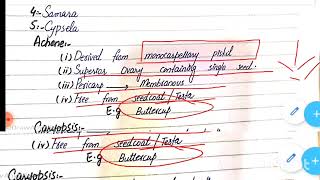 4:- Samara
5:- Cypsela
Achene:-
(i) Derived from monocarpellary pistil
(ii) Superior Ovary containing single seed.
(iii) Pericarp → Membranous
(iv) Free from seedcoat / Testa
E.g Buttercup
Caryopsis:-
(iv) Free from seedcoat / Testa
E.g Buttercup
Caryopsis:-